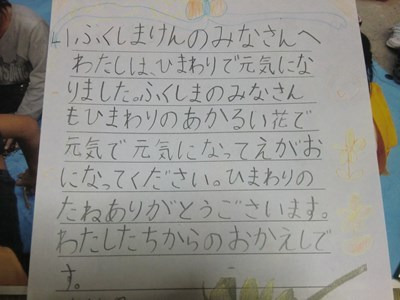 ふくしまけんのみなさんへ
わたしは、ひまわりで元気にな
りました。ふくしまのみなさん
もひまわりのあかるい花で
元気で元気になってえがお
になってください。ひまわりの
たねありがとうございます。
わたしたちからのおかえしで
す。